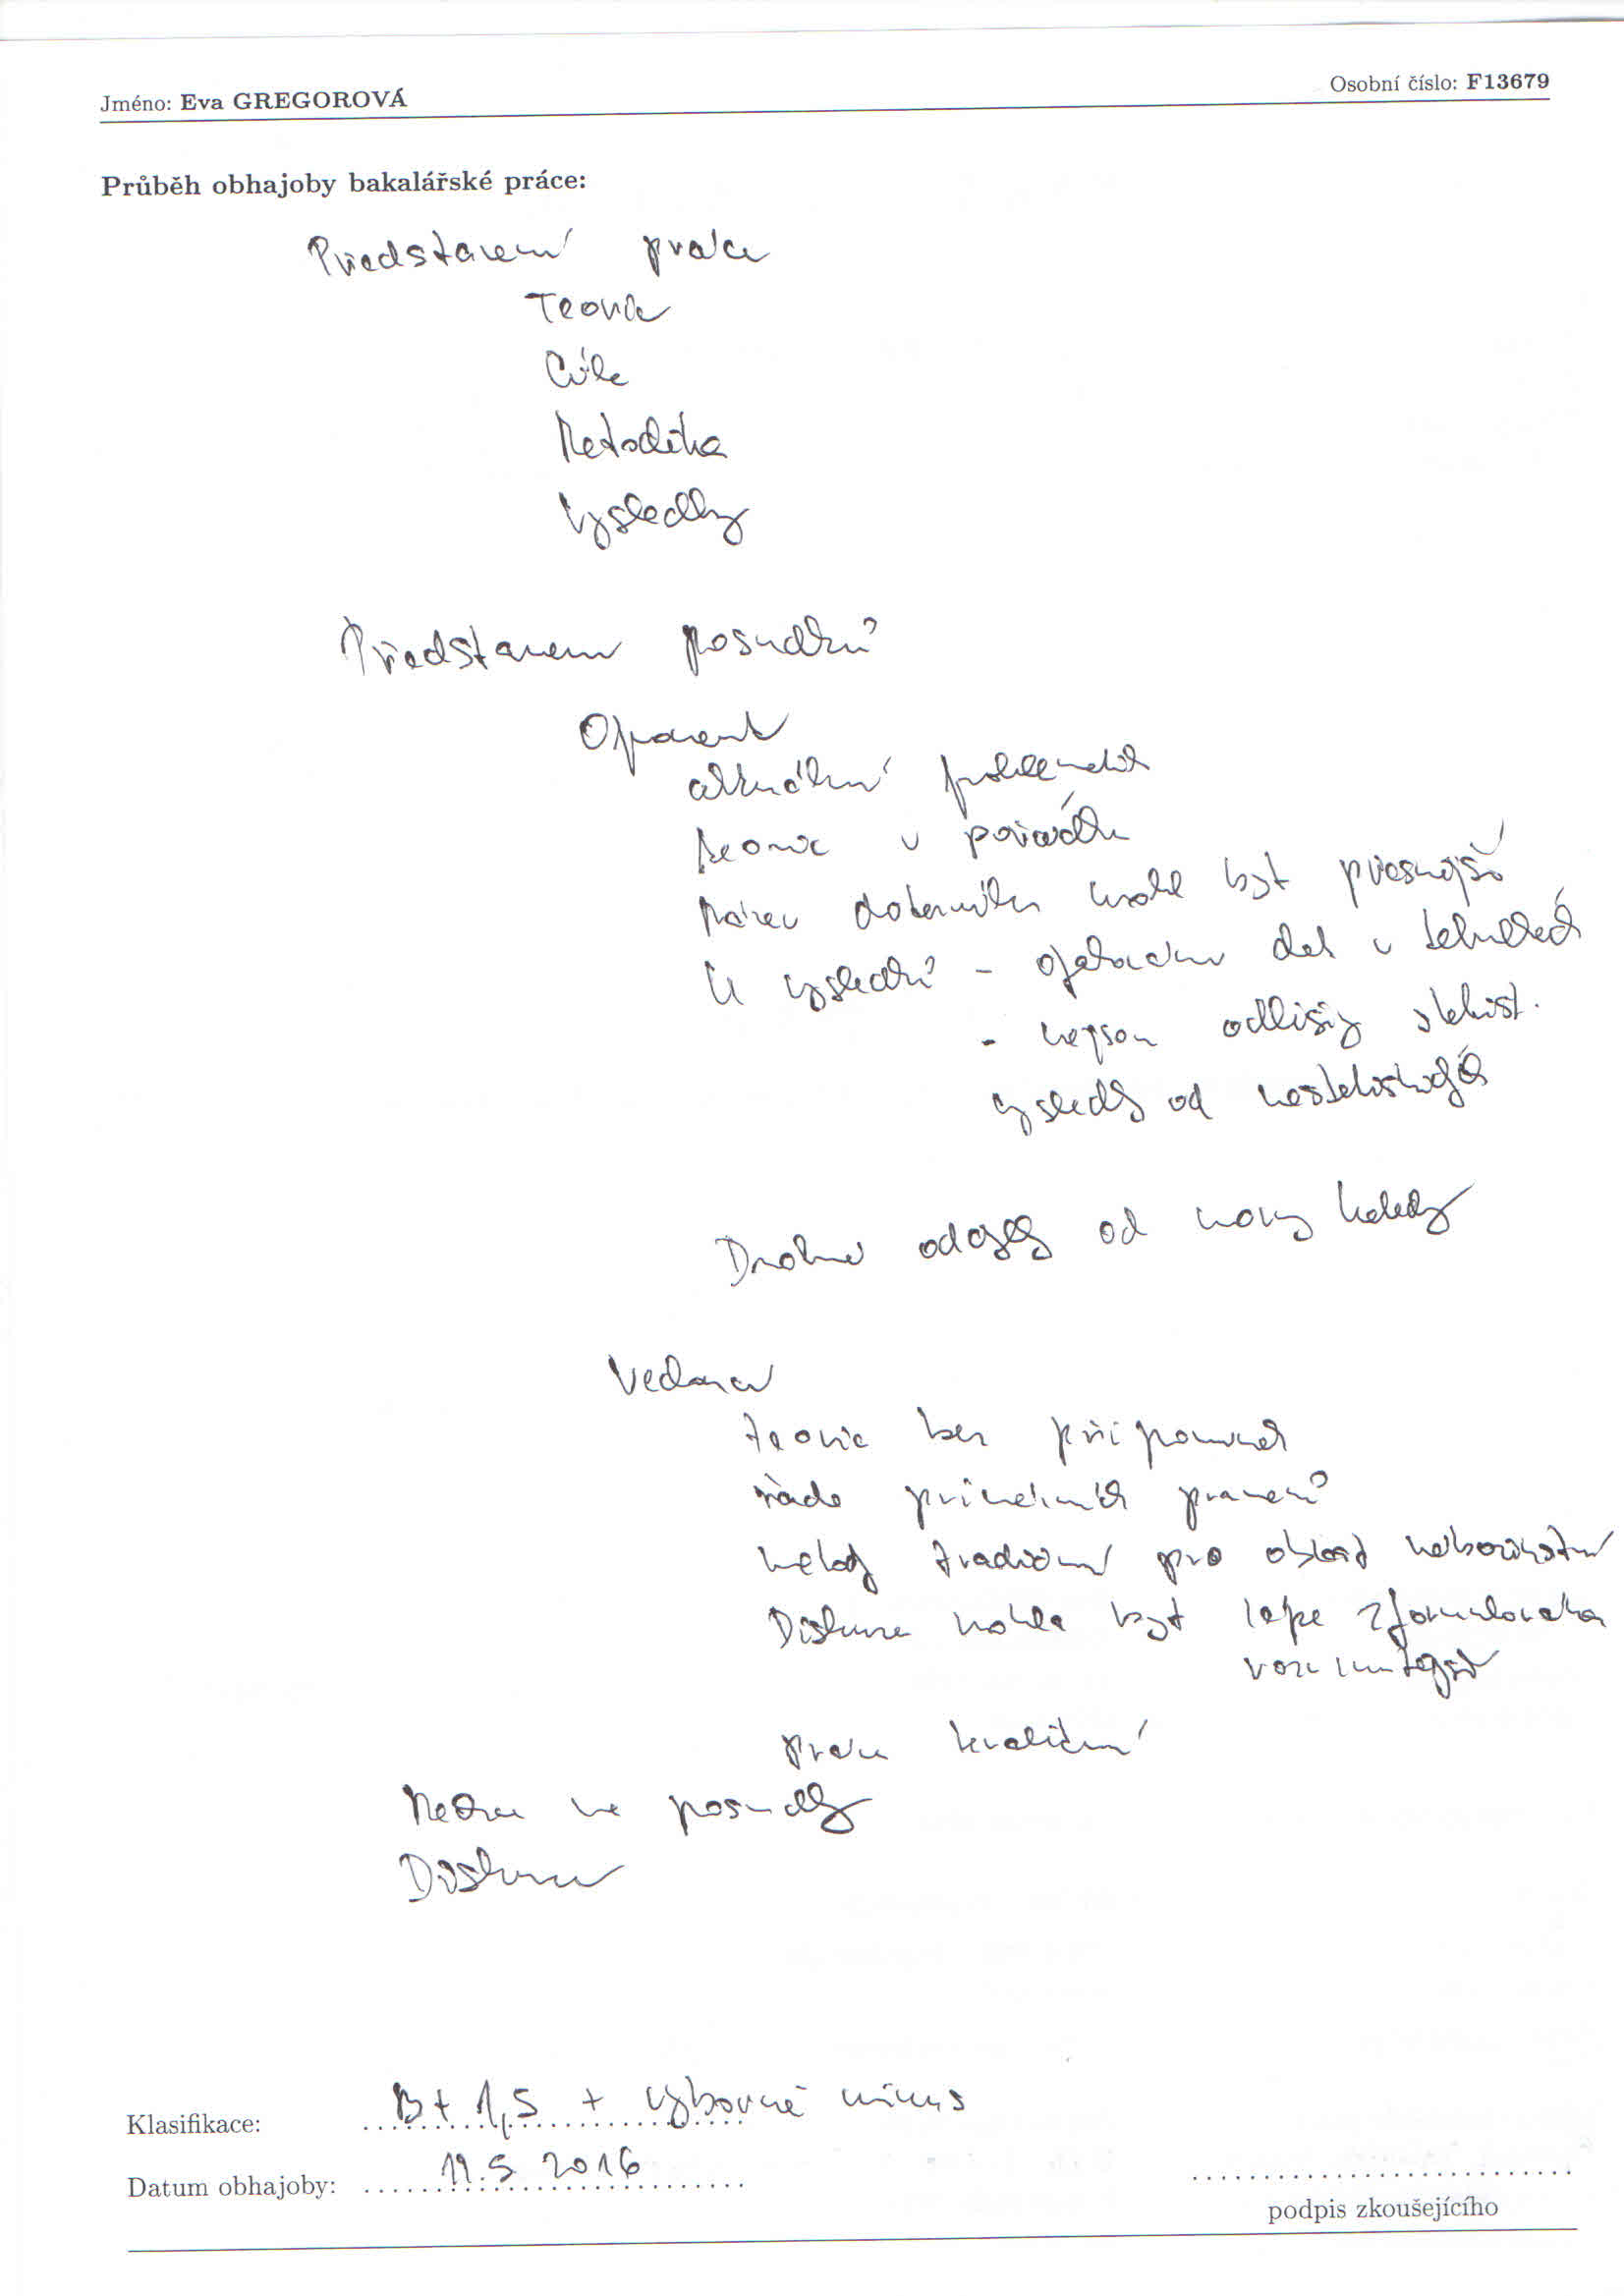 Jméno: Eva GREGOROVÁ
Osobní číslo: F13679
Průběh obhajoby bakalářské práce:
Představení práce
Teorie
Cíle
Metodika
Výsledky
Představení posudků
Oponent
aktuální problematik
teorie v pořádku
Název dotazníku mohl být přesnější
U výsledků - opakování dat v tabulkách
- nejsou odlišeny statist.
výsledky od nestatistických
Drobné odchylky od normy
Vedoucí
teorie bez připomínek
řada primárních pramenů
metody tradiční pro oblast
Diskuse mohla být lépe zformulována
práce kvalitní
Reakce na posudky
Diskuse
Klasifikace: B+ 1,5 + výborně minus
Datum obhajoby: 19.5 2016
podpis zkoušejícího